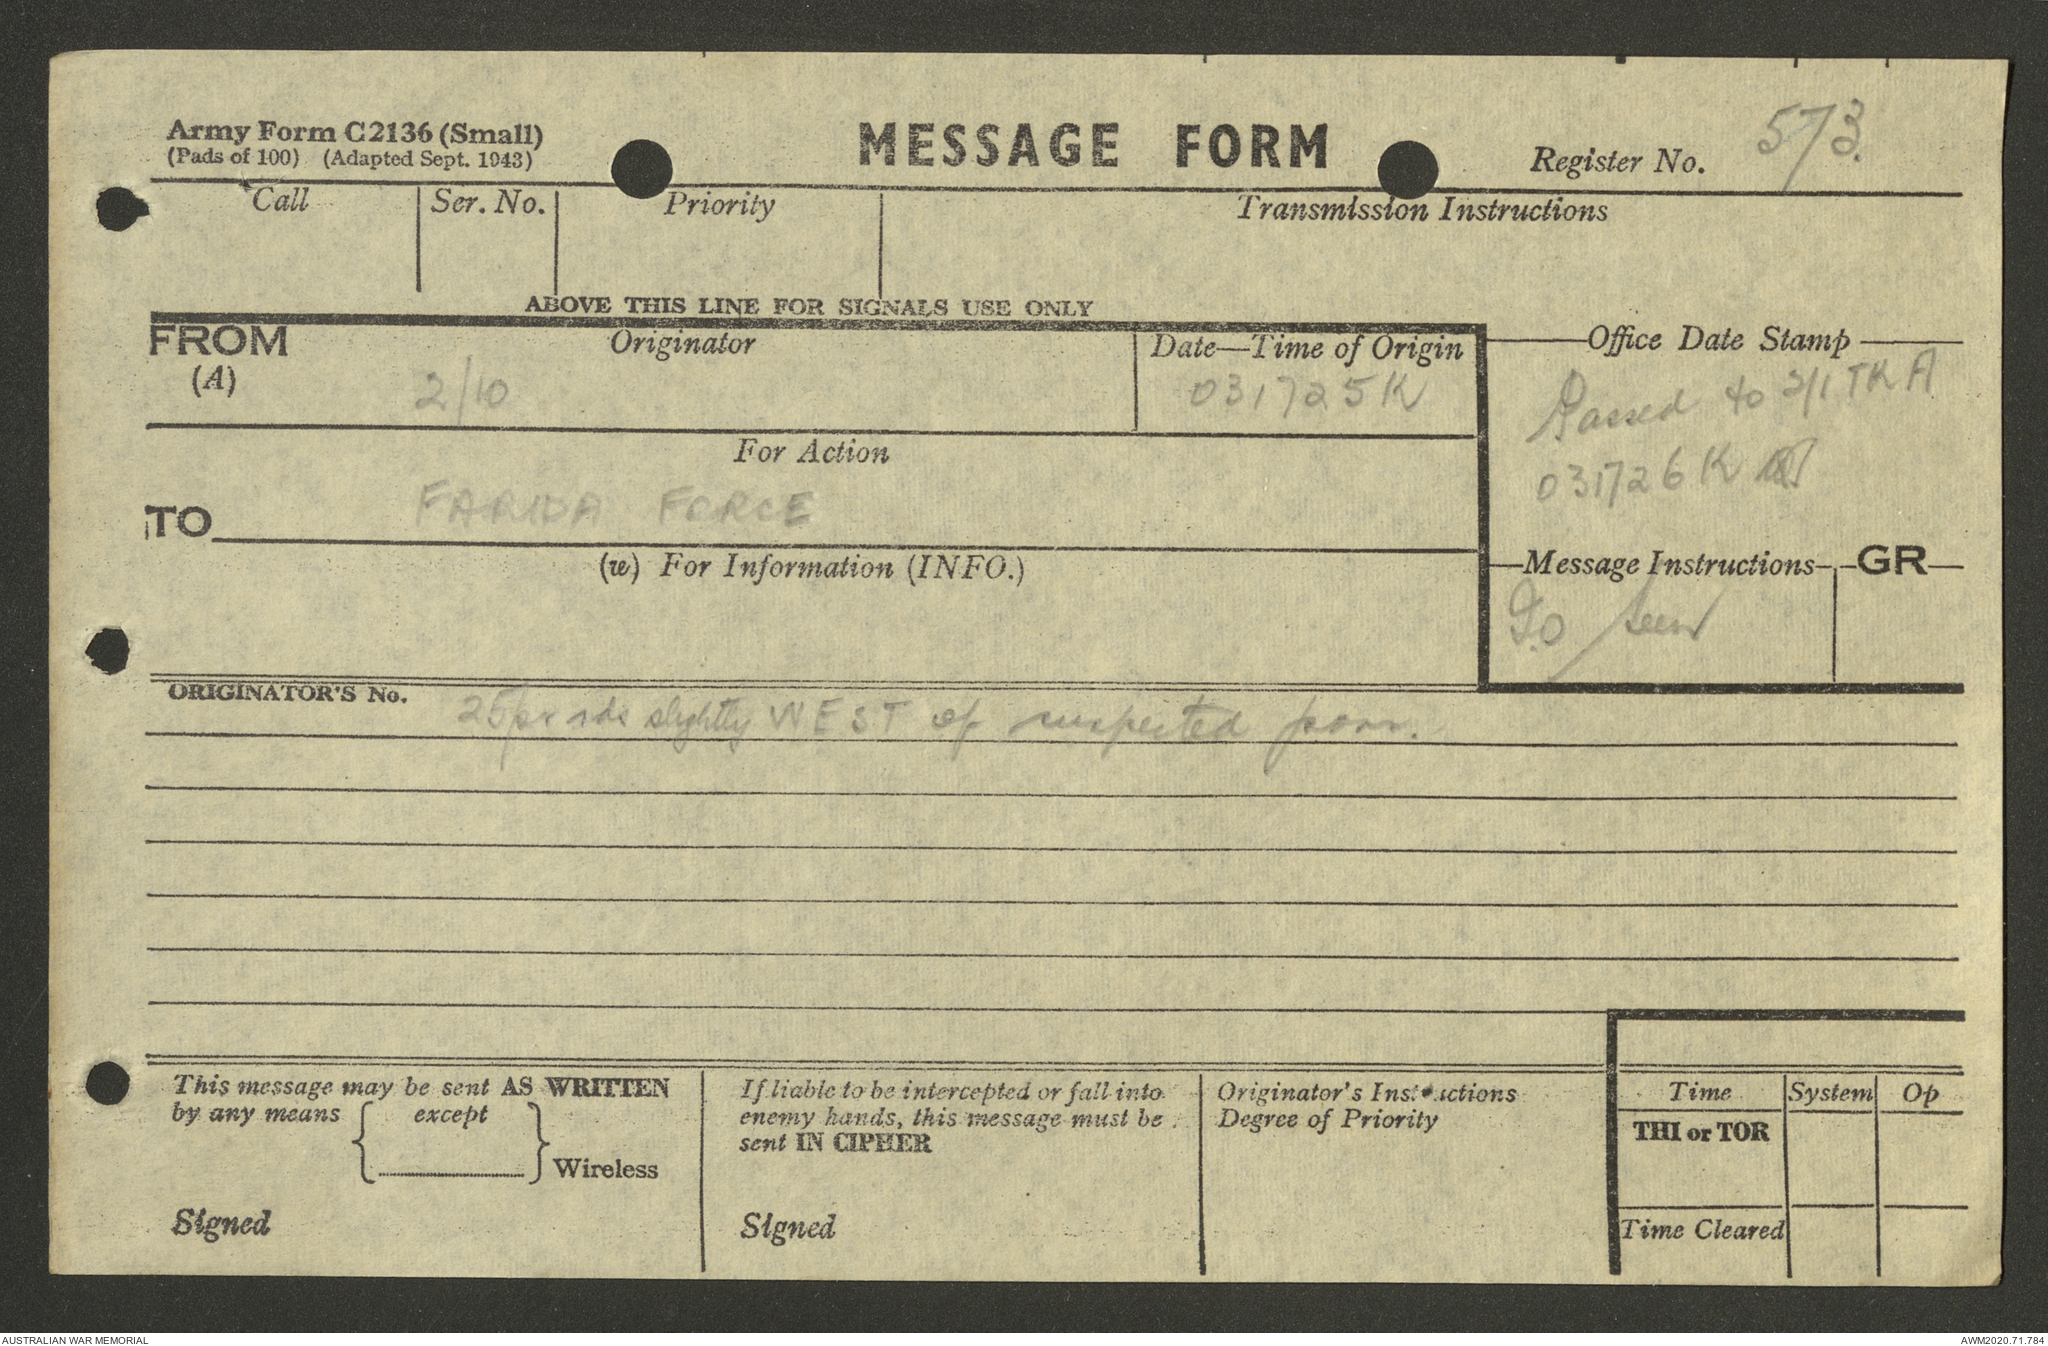 Army Form C2136 (Small)
(Pads of 100) (Adapted Sept. 1943)
MESSAGE FORM
Register No. 573.
Call
Ser. No.
Priority
Transmission Instructions
ABOVE THIS LINE FOR SIGNALS USE ONLY
FROM
(A)
Originator
2/10
Date—Time of Origin
031725K
Office Date Stamp
Passed to 2/1 TK A
031726K
For Action
TO
FARIDA FORCE
(w) For Information (INFO.)
Message Instructions
GR
IO seen
ORIGINATOR'S No.
25pr rds slightly WEST of suspected posn.
This message may be sent AS WRITTEN
by any means
except
Wireless
Signed
If liable to be intercepted or fall into
enemy hands, this message must be
sent IN CIPHER
Signed
Originator's Instructions
Degree of Priority
Time
System
Op
THI or TOR
Time Cleared
AUSTRALIAN WAR MEMORIAL
AWM2020.71.784